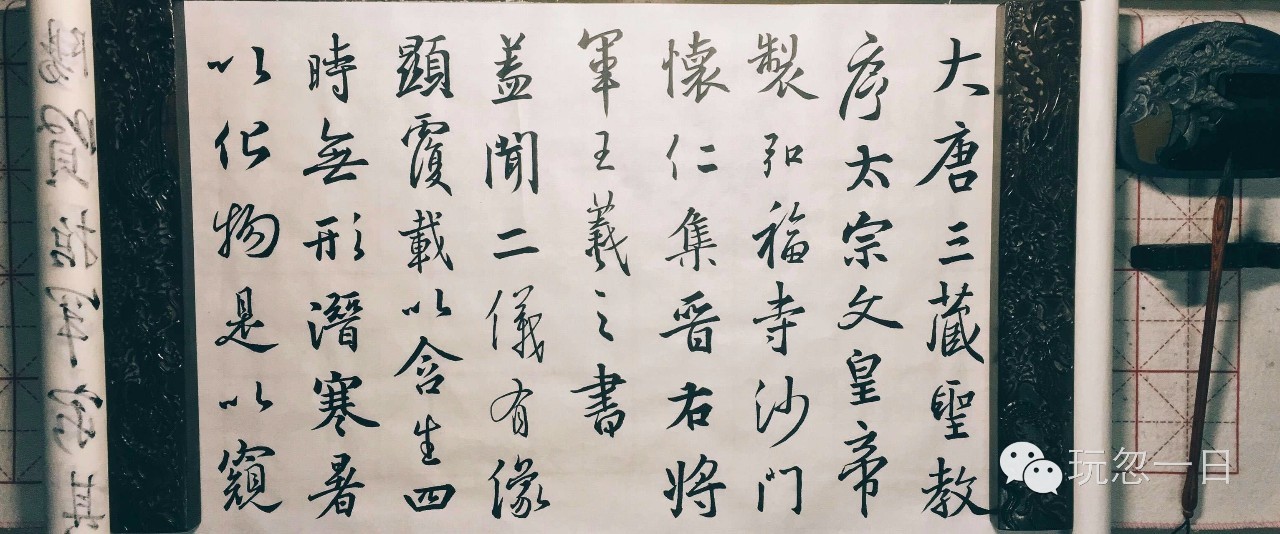 大唐三藏聖教
序太宗文皇帝
製弘福寺沙門
懷仁集晉右將
軍王羲之書
蓋聞二儀有像
顯覆載以含生四
時無形潛寒暑
以化物是以窺
玩忽一日